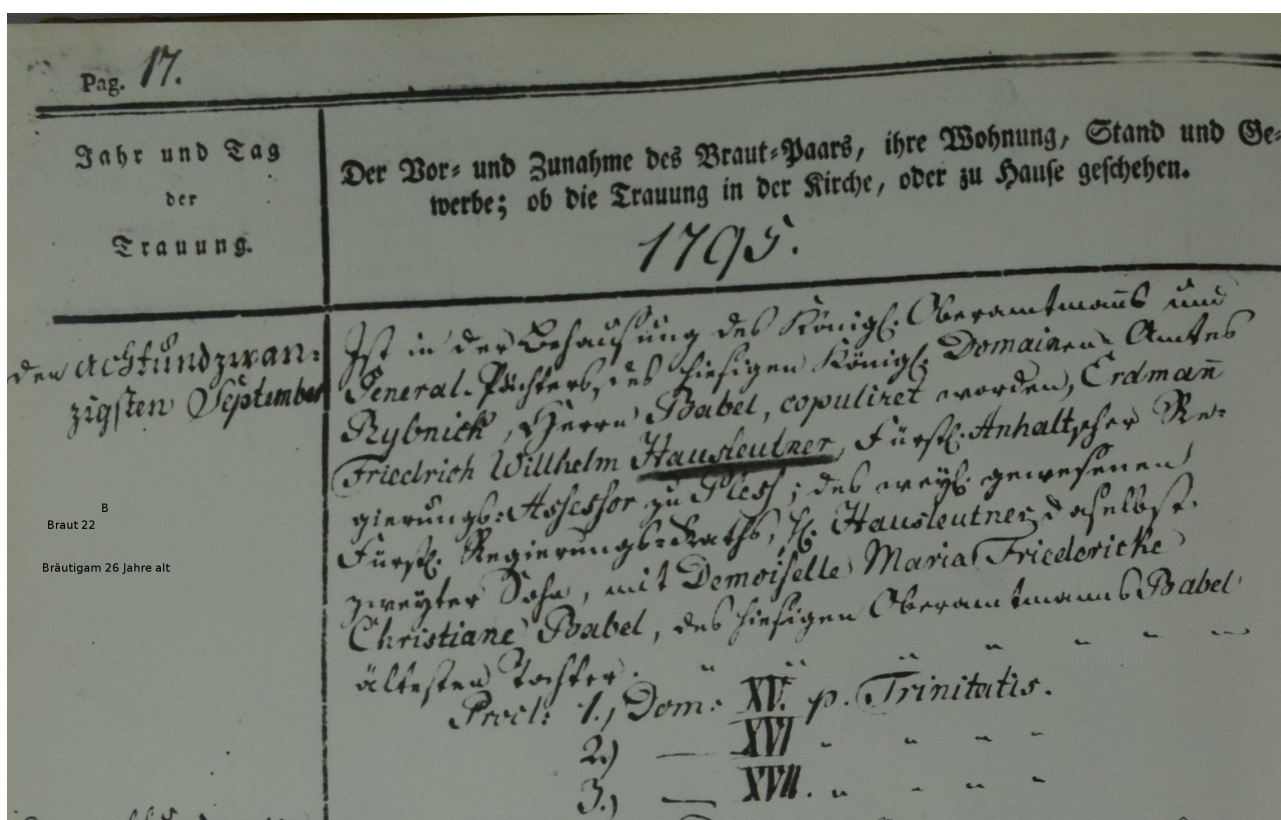 Pag. 17.
Jahr und Tag
der
Trauung.
Der Vor- und Zunahme des Braut-Paars, ihre Wohnung, Stand und Ge-
werbe; ob die Trauung in der Kirche, oder zu Hause geschehen.
1795.
den achtundzwan-
zigsten September
B
Braut 22
Bräutigam 26 Jahre alt
Ist in der Behausung des Königl. Oberamtmanns und
General-Pächters, des hiesigen Königl. Domainen-Amtes
Rybnick, Herrn Babel, copuliret worden, Erdmañ
Friedrich Willhelm Hausleutner, Fürstl. Anhaltscher Re-
gierungs-Assessor zu Pless; des weyl. gewesenen
Fürstl. Regierungs-Raths, H. Hausleutner, daselbst
zweyter Sohn, mit Demoiselle Maria Friedericke
Christiane Babel, des hiesigen Oberamtmanns Babel
ältesten Tochter.
Procl: 1.) Dom: XV. p. Trinitatis.
2.) — XVI " " " "
3.) — XVII. " " " "